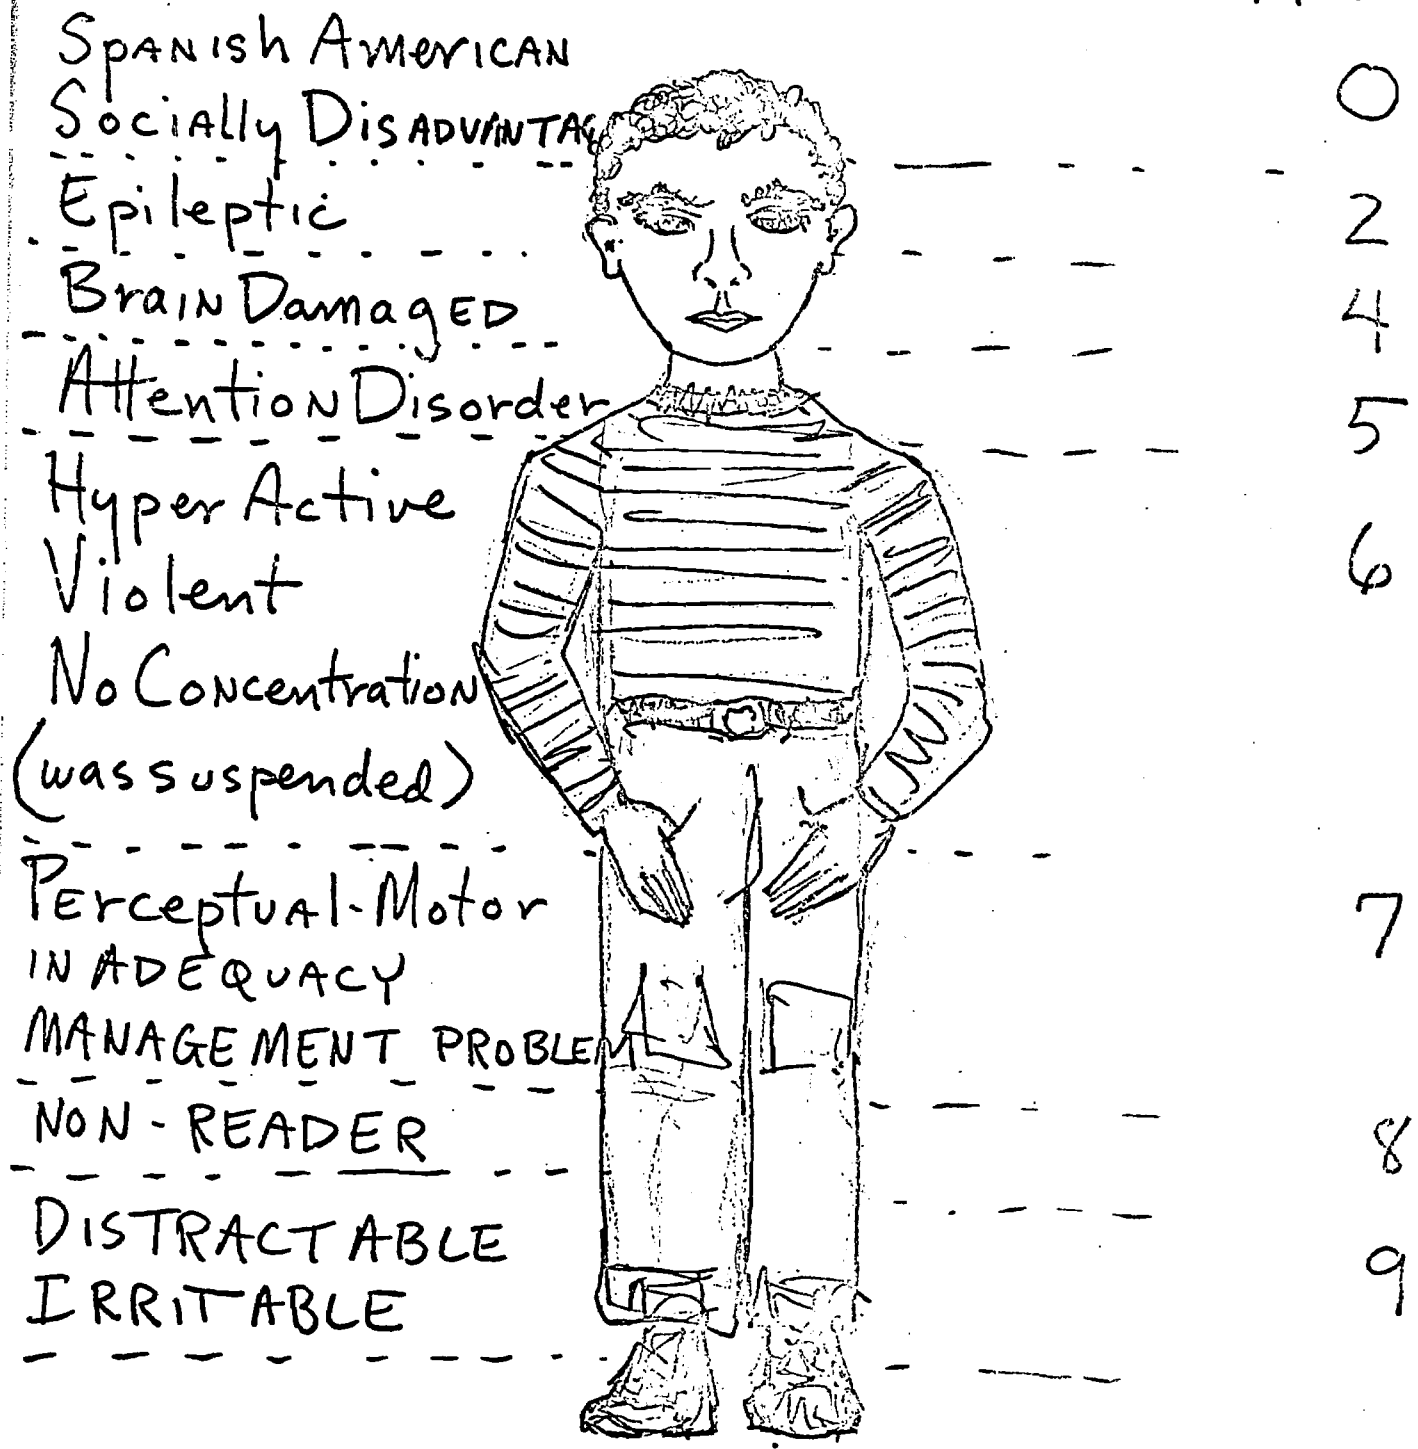 Spanish American
0
Socially Disadvantag
Epileptic
2
Brain Damaged
4
Attention Disorder
5
Hyper Active
6
Violent
No Concentration
(was suspended)
Perceptual-Motor
7
INADEQUACY
MANAGEMENT PROBLEM
NON-READER
8
DISTRACTABLE
9
IRRITABLE